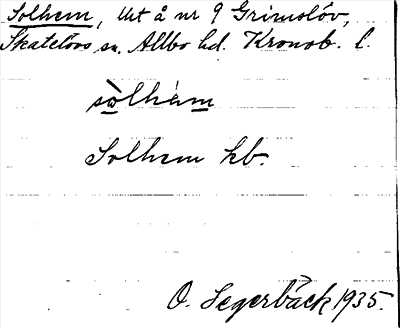 Solhem, lht å nr 9 Grimslöv,
Skatelövs sn. Allbo hd. Kronob. l.
sòlhàm
Solhem kb.
O. Segerbäck 1935.